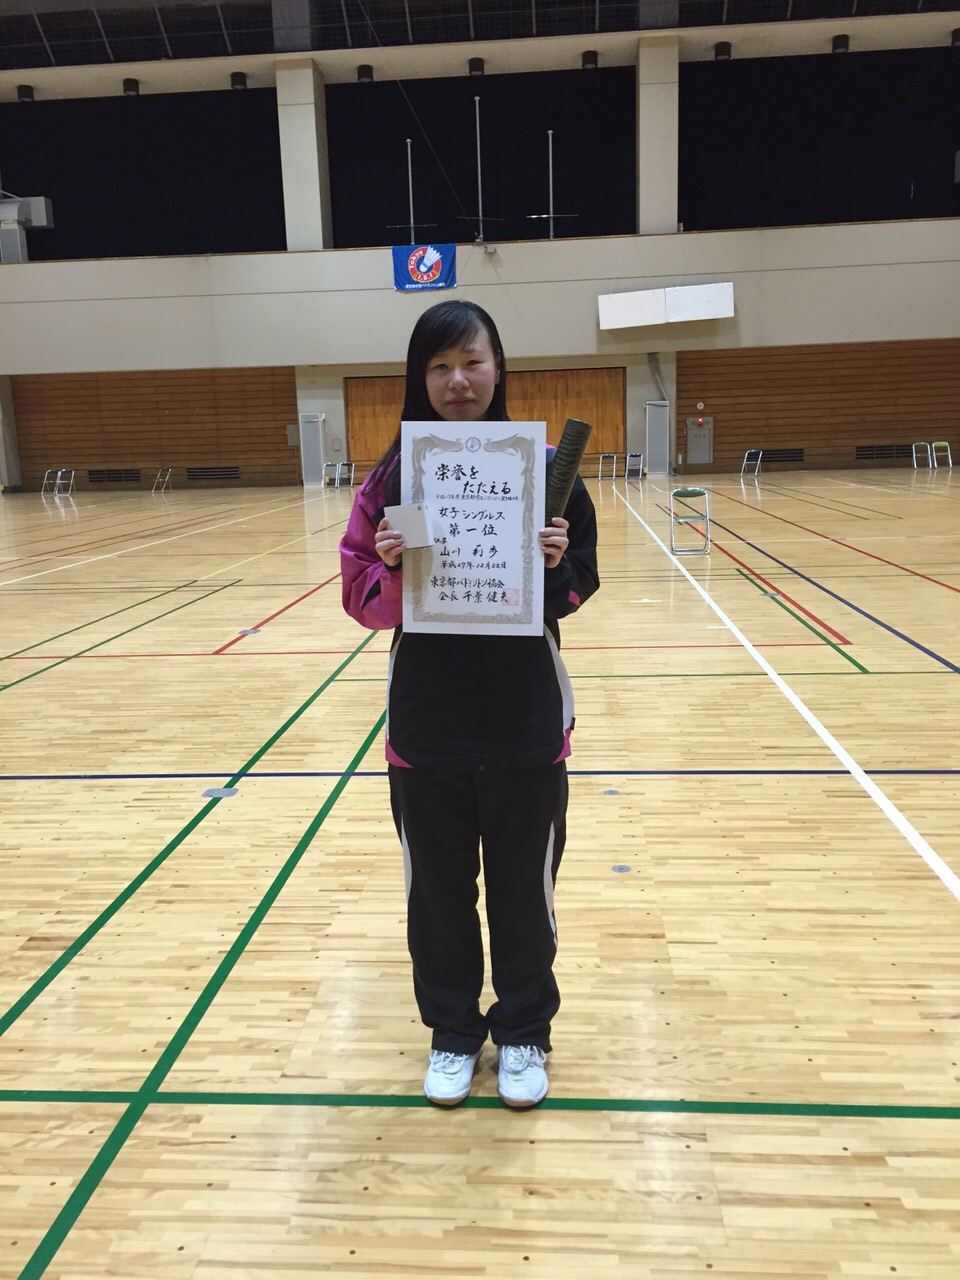 Tokyo
栄誉を
たたえる
女子シングルス
第一位
山川 莉歩
平成27年12月22日
東京都バドミントン協会
会長 千葉健夫